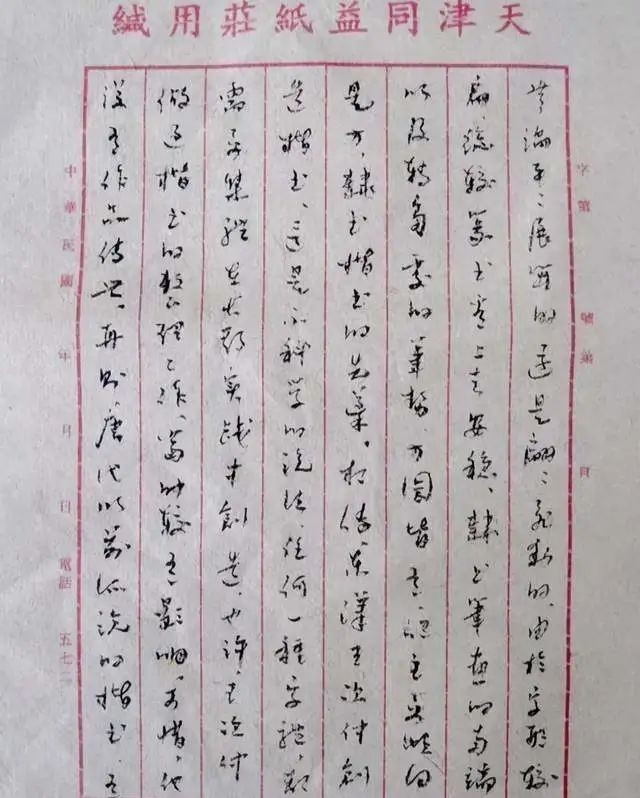 天津同益紙莊用緘
字第 號第 頁
展翼的還是翩々飛動的,由於字形較
扁,總較篆書看上去安穩,隸書筆画的兩端
以及轉角處的筆勢,方圓皆有,但主要傾向
是方,隸書楷書的先導。相傳東漢王次仲創
造楷書,這是不科學的說法,任何一種字體,都
需要集體在長期實踐中創造,也許,王次仲
做過楷書的整理工作,當時較有影响,可惜,他
沒有作品傳世,再則唐代以前所說的楷書,
中華民國 年 月 日 電話 五七二